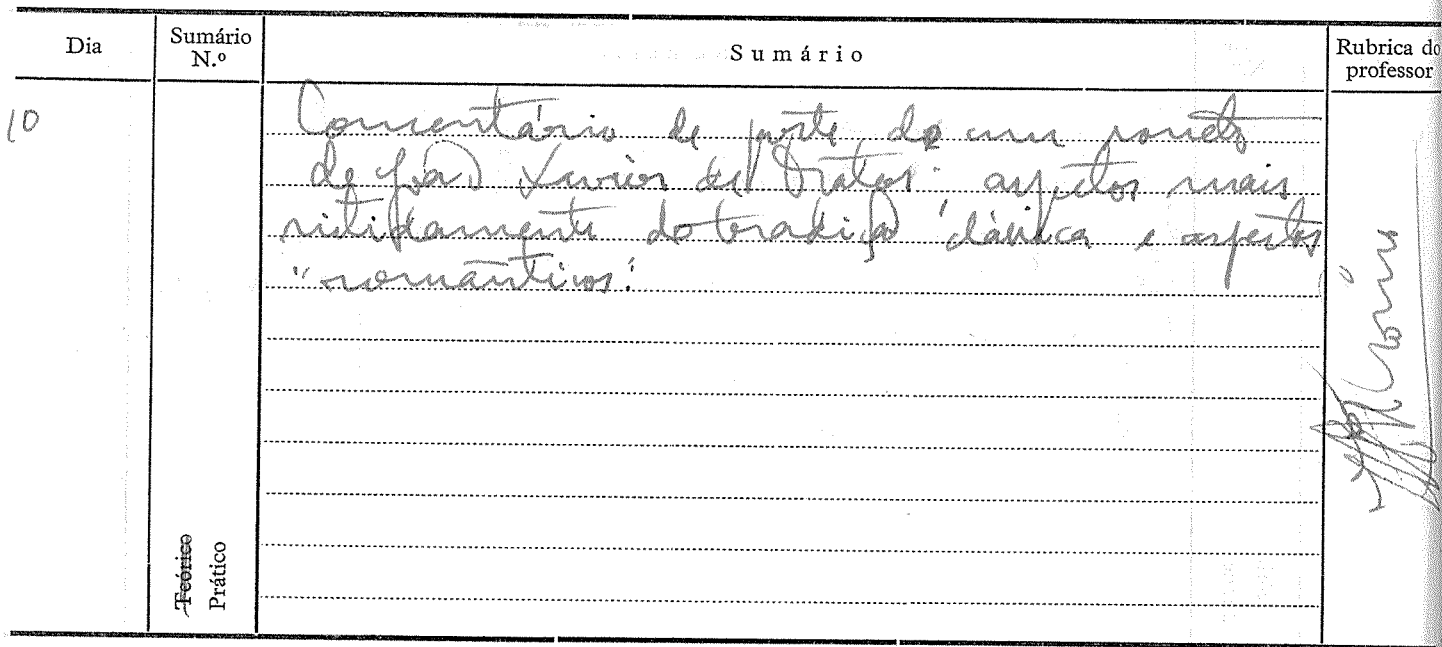 Dia
Sumário N.º
Sumário
Rubrica do professor
10
Comentário de parte de um soneto
de João Xavier de Matos: aspectos mais
nitidamente da tradição clássica e aspectos
"românticos".
Teórico
Prático